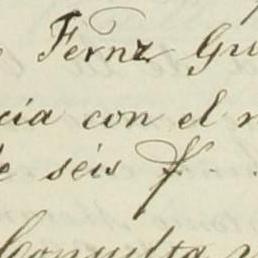 Fernz Gu
cia con el
de seis
Consulta